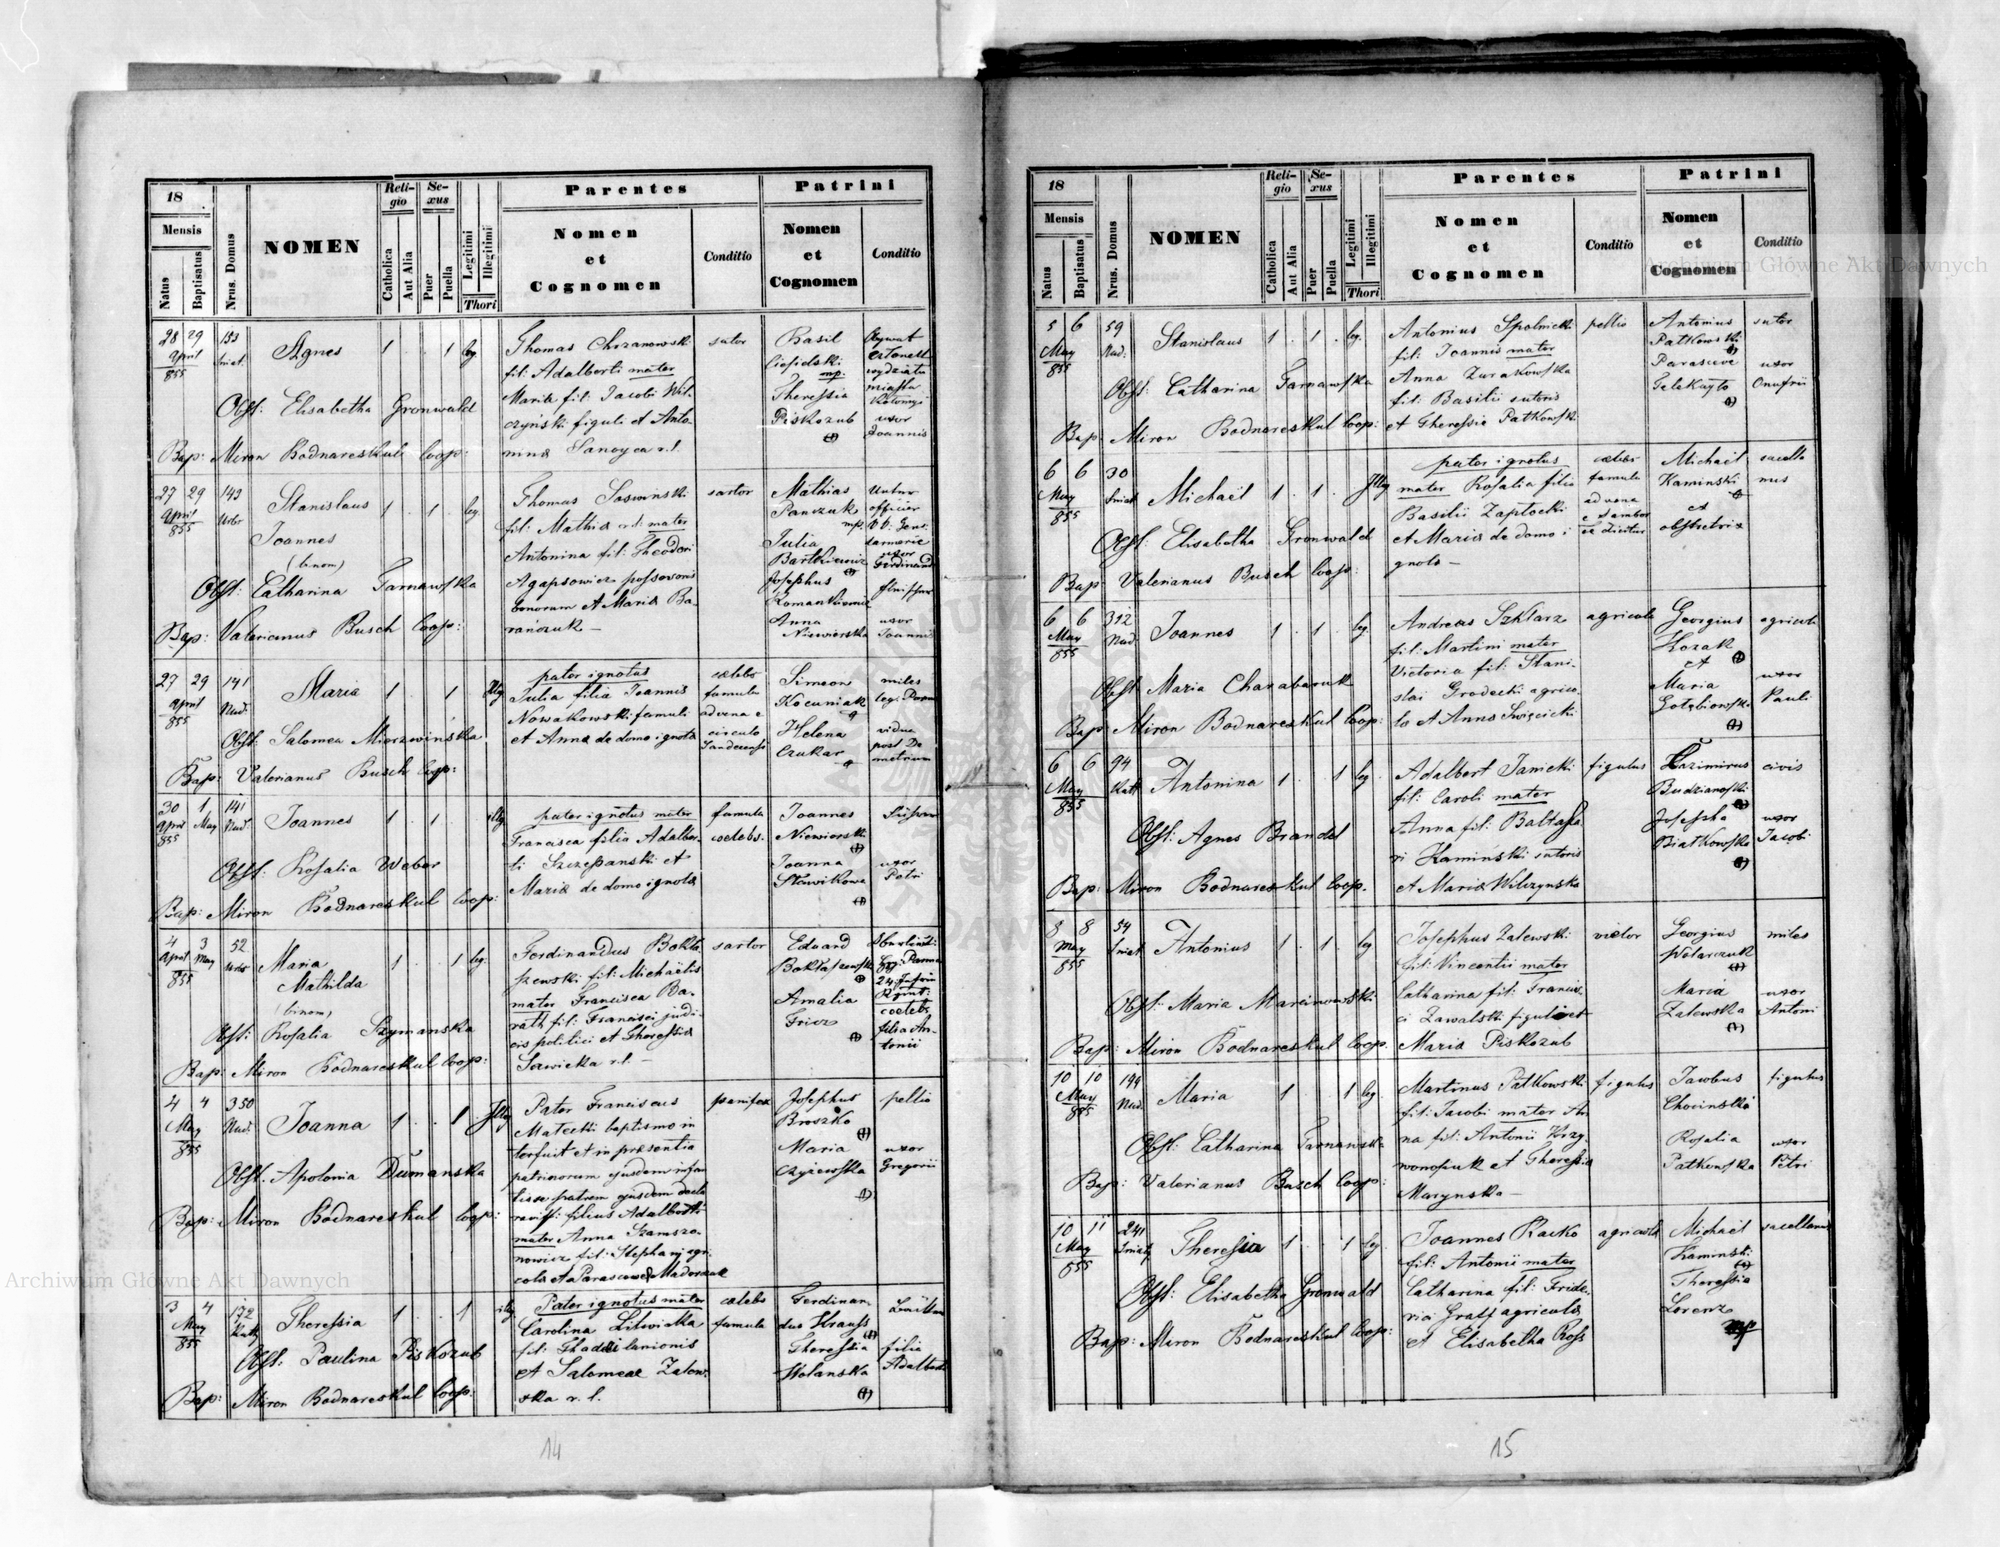 18
Mensis
Natus
Baptisatus
Nrus. Domus
NOMEN
Reli-
gio
Catholica
Aut Alia
Se-
xus
Puer
Puella
Legitimi
Illegitimi
Thori
Parentes
Nomen
et
Cognomen
Conditio
Patrini
Nomen
et
Cognomen
Conditio
28 29 153 Agnes 1 . . 1 leg.
April
855
Thomas Chrzanowski sutor
fil: Adalberti mater
Maria fil: Jacobi Wil-
czyński figuli et Anto-
nina Sanoyca r.l.
Basil
mp.
Theressia
Piskozub
miasta
uxor
Joannis
Obst: Elisabetha Gronwald
Bap: Miron Bodnareskul Coop:
27 29 143 Stanislaus 1 . 1 . leg.
April Urbr Joannes
855 (binom)
Thomas Soswinski sartor
fil: Mathia r.l. mater
Antonina fil: Theodori
Agapsowicz possessoris
bonorum et Maria Ba-
rańczuk —
Mathias Unter
Panczuk officier
mp.
Julia
Bartkiewicz uxor
Ferdinandi
Josephus
Anna uxor
Niewierska Joannis
Obst: Catharina Tarnawska
Bap: Valerianus Busch Coop:
27 29 141 Maria 1 . . 1 Illeg
April Nad.
855
pater ignotus caelebs
Julia filia Joannis famula
Nowakowski famuli advena e
et Anna de domo ignota circulo
Sandecensi
Simeon miles
Kocuniak leg. Parma
Helena vidua
Czukar post De-
metrium
Obst: Salomea Mierzwińska
Bap: Valerianus Busch Coop:
30 1 141 Joannes 1 . 1 . illeg
April May Nad.
855
pater ignotus mater famula
Francisca filia Adalber- caelebs.
ti Szczepanski et
Maria de domo ignota
Joannes
Niewierski
Joanna uxor
Sławikowa Petri
Obst: Rosalia Weber
Bap: Miron Bodnareskul Coop:
4 3 52 Maria 1 . . 1 leg.
April May Urbr Mathilda
855 (binom)
Ferdinandus Bokła- sartor
szewski fil: Michaëlis
mater Francisca Ba-
rath fil: Francisci judi-
cis politici et Theressia
Sawicka r.l. —
Eduard
Bokłaszewski
Amalia
Fricz
Parma
24
caelebs
filia An-
tonii
Obst: Rosalia Szymanska
Bap: Miron Bodnareskul Coop:
4 4 350 Joanna 1 . . 1 Illeg
May Nad.
855
Pater Franciscus panifex
Matecki baptismo in
terfuit et in praesentia
patrinorum ejusdem infan
tis se patrem ejusdem decla
ravit filius Adalberti
mater Anna Szamszo-
nowicz fil: Stephani agri-
cola et Parascevae Madorzak
Josephus pellio
Broszko
Maria uxor
Czyżewska Gregorii
Obst: Apolonia Dumanska
Bap: Miron Bodnareskul Coop:
3 4 172 Theressia 1 . . 1 illeg
May
855
Pater ignotus mater caelebs
Carolina Litwicka famula
fil: Thadei lanionis
et Salomeae Zalew-
ska r.l.
Ferdinan-
dus Krauss
Theressia filia
Wolanska Adalberti
Obst: Paulina Piskozub
Bap: Miron Bodnareskul Coop:
14
18
Mensis
Natus
Baptisatus
Nrus. Domus
NOMEN
Reli-
gio
Catholica
Aut Alia
Se-
xus
Puer
Puella
Legitimi
Illegitimi
Thori
Parentes
Nomen
et
Cognomen
Conditio
Patrini
Nomen
et
Cognomen
Conditio
5 6 59 Stanislaus 1 . 1 . leg.
May Nad.
855
Antonius Spolnicki pellio
fil: Joannis mater
Anna Zurakowska
fil: Basilii sutoris
et Theressia Patkowsk.
Antonius sutor
Patkowski
Parasceve uxor
Onufrii
Obst: Catharina Tarnawska
Bap: Miron Bodnareskul Coop:
6 6 30 Michaël 1 . 1 . Illeg
May Sniat
855
pater ignotus caelebs
mater Rosalia filia famula
Basilii Zaplocki advena
et Maria de domo i e Sambor
gnota —
Michaël sacella
Kaminski nus
et
obstetrix
Obst: Elisabetha Gronwald
Bap: Valerianus Busch Coop:
6 6 312 Joannes 1 . 1 . leg
May Nad.
855
Andreas Szklarz agricola
fil: Martini mater
Victoria fil: Stani-
slai Grodecki agrico-
la et Anna Swięcicki
Georgius agricola
Kozak
et
Maria uxor
Gołębiowska Pauli
Obst Maria Charabaruk
Bap: Miron Bodnareskul Coop:
6 6 94 Antonina 1 . . 1 leg.
May
855
Adalbert Janicki figulus
fil: Caroli mater
Anna fil: Baltasa
ri Kaminski sutoris
et Maria Wilczynska
Cazimirus civis
Budzianowski
Josepha uxor
Białkowska Jacobi
Obst: Agnes Brandel
Bap: Miron Bodnareskul Coop.
8 8 54 Antonius 1 . 1 . leg
May Sniat
855
Josephus Zalewski vietor
fil: Vincentii mater
Catharina fil: Francis-
ci Zawalski figuli et
Maria Piskozub
Georgius miles
Wolarczuk
Maria uxor
Zalewska Antoni
Obst: Maria Marcinowski
Bap: Miron Bodnareskul Coop.
10 10 199 Maria 1 . . 1 leg
May Nad.
855
Martinus Patkowski figulus
fil: Jacobi mater An-
na fil: Antonii Krzy-
wonosiuk et Theressia
Marynska —
Jacobus figulus
Chocinski
Rosalia uxor
Patkowska Petri
Obst: Catharina Tarnawska
Bap: Valerianus Busch Coop:
10 11 241 Theressia 1 . . 1 leg.
May Sniat
855
Joannes Racko agricola
fil: Antonii mater
Catharina fil: Fride-
rici Gratz agricola
et Elisabetha Ross
Michaël sacellanus
Kaminski
Theressia
Lorenz
Obst: Elisabetha Gronwald
Bap: Miron Bodnareskul Coop:
15
Archiwum Główne Akt Dawnych
Archiwum Główne Akt Dawnych